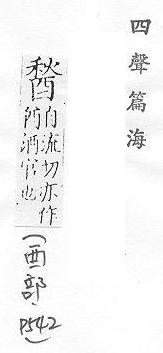 四聲篇海
自流切亦作
酒官也
(酉部, P542)